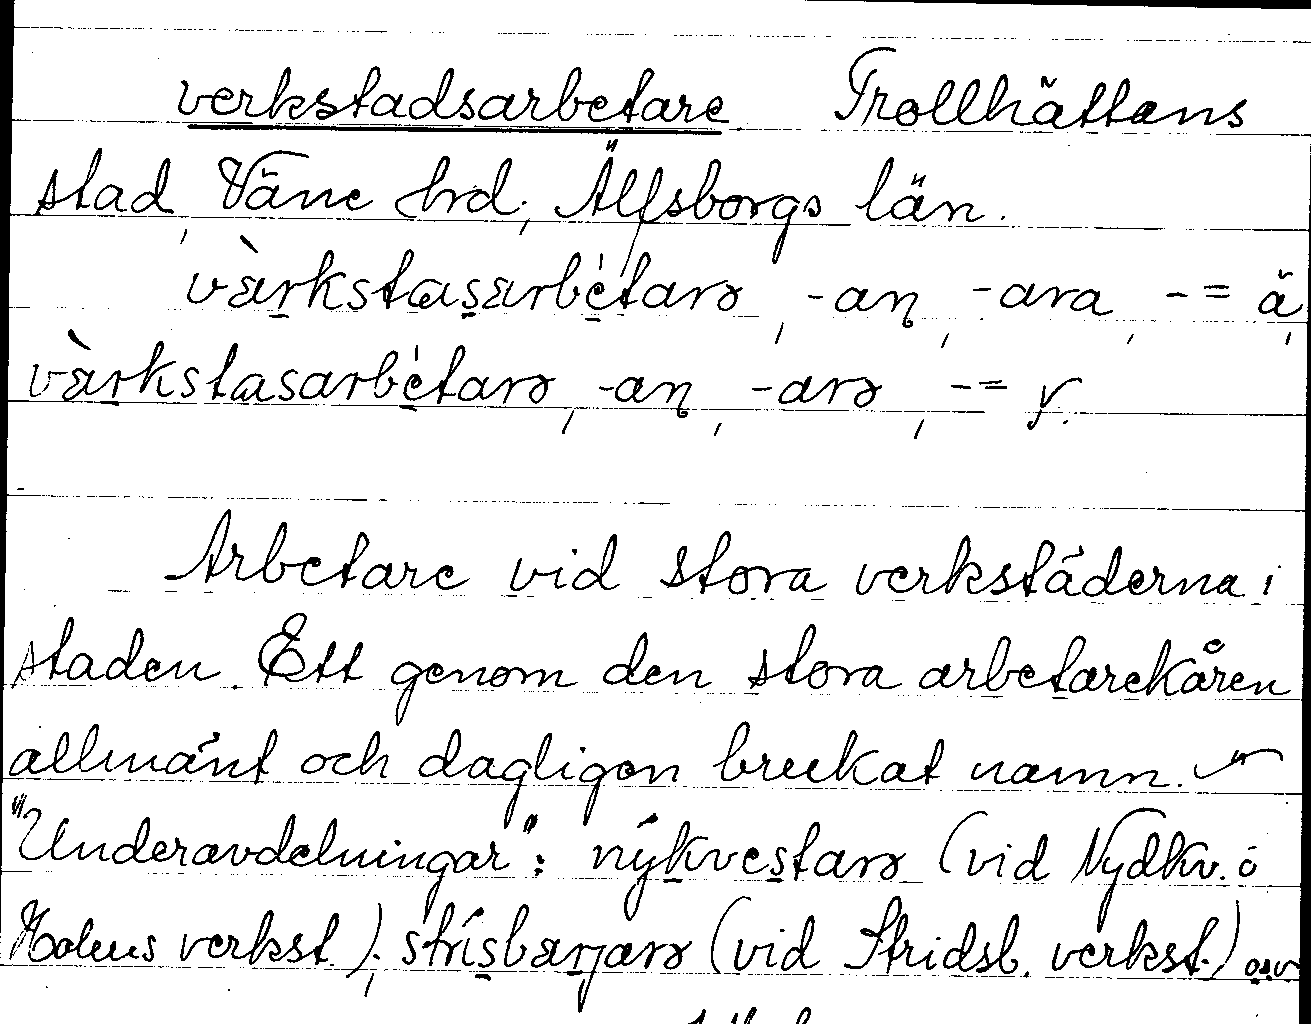 verkstadsarbetare Trollhättans
stad, Väne hrd, Älfsborgs län.
värkstasarbétarə, -aɳ, -ara, -= ä,
värkstasarbétarə, -aɳ, -arə, -= y.
Arbetare vid stora verkstäderna i
staden. Ett genom den stora arbetarekåren
allmänt och dagligen brukat namn.
"Underavdelningar": nýkvestarə (vid Nydkv. o
Holms verkst.), strísbarjarə (vid Stridsb. verkst.) osv